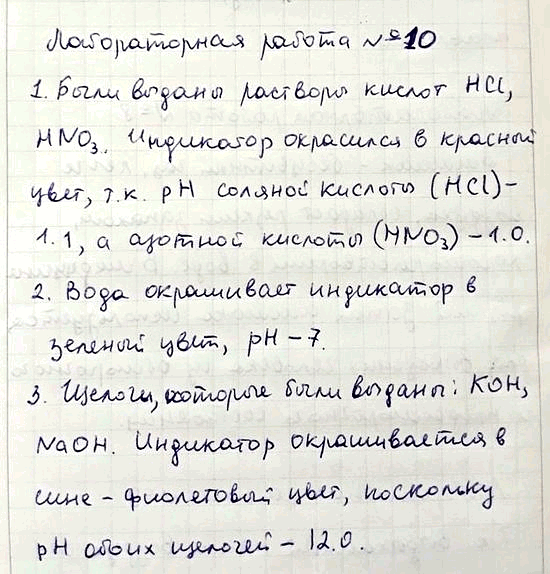 Лабораторная работа №10
1. Были выданы растворы кислот HCl,
HNO3. Индикатор окрасился в красный
цвет, т.к. pH соляной кислоты (HCl) –
1.1, а азотной кислоты (HNO3) – 1.0.
2. Вода окрашивает индикатор в
зеленый цвет, pH – 7.
3. Щелочи, которые были выданы: KOH,
NaOH. Индикатор окрашивается в
сине – фиолетовый цвет, поскольку
pH обоих щелочей – 12.0.